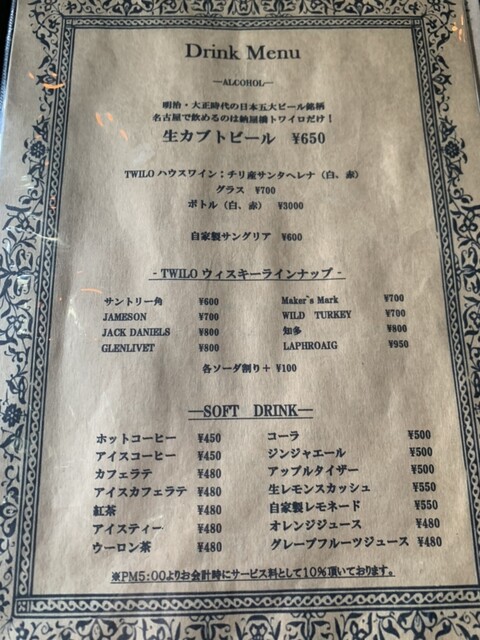 Drink Menu
―ALCOHOL―
明治・大正時代の日本五大ビール銘柄
名古屋で飲めるのは納屋橋トワイロだけ！
生カブトビール ¥650
TWILO ハウスワイン：チリ産サンタヘレナ（白、赤）
グラス ¥700
ボトル（白、赤） ¥3000
自家製サングリア ¥600
- TWILO ウィスキーラインナップ -
サントリー角 ¥600 Maker`s Mark ¥700
JAMESON ¥700 WILD TURKEY ¥700
JACK DANIELS ¥800 知多 ¥800
GLENLIVET ¥800 LAPHROAIG ¥950
各ソーダ割り＋ ¥100
―SOFT DRINK―
ホットコーヒー ¥450 コーラ ¥500
アイスコーヒー ¥450 ジンジャエール ¥500
カフェラテ ¥480 アップルタイザー ¥500
アイスカフェラテ ¥480 生レモンスカッシュ ¥550
紅茶 ¥480 自家製レモネード ¥550
アイスティー ¥480 オレンジジュース ¥480
ウーロン茶 ¥480 グレープフルーツジュース ¥480
※PM5:00よりお会計時にサービス料として10％頂いております。